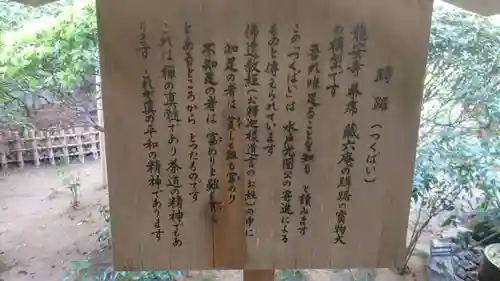 蹲踞（つくばい）
龍安寺 茶席 蔵六庵の蹲踞の実物大
の模型です
吾れ唯足ることを知る と読みます
この「つくばい」は 水戸光圀公の寄進による
ものと傳えられています
佛遺教経（お釋迦様遺言のお経）の中に
知足の者は 貧しと雖も富めり
不知足の者は 富めりと雖も貧し
とあるところから とったものです
これは 禅の真髄であり 茶道の精神であ
ります これが真の平和の精神であります